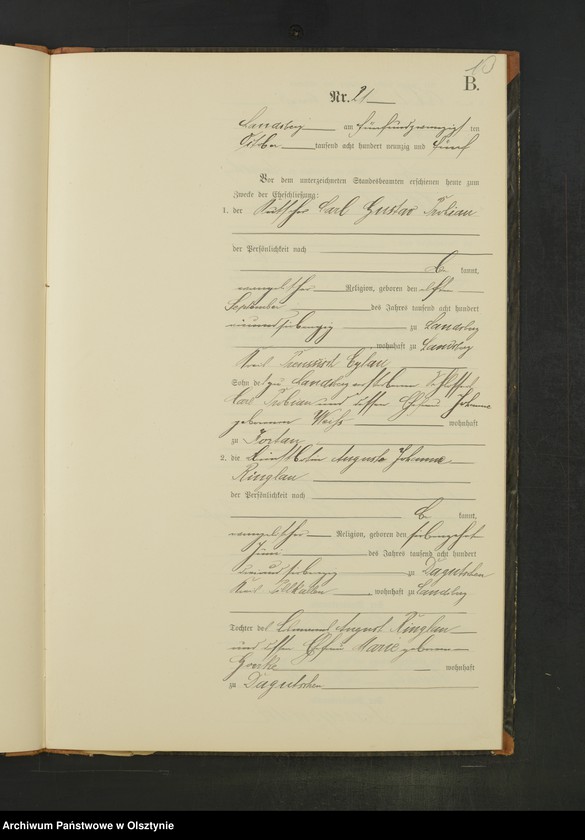 10
B.
Nr. 21
Landsberg am fünfundzwanzigsten
October tausend acht hundert neunzig und fünf
Vor dem unterzeichneten Standesbeamten erschienen heute zum
Zwecke der Eheschließung:
1. der Kutscher Carl Gustav
der Persönlichkeit nach
be kannt,
evangelischer Religion, geboren den elften
September des Jahres tausend acht hundert
zu Landsberg
wohnhaft zu Landsberg
Kreis Preussisch Eylau
Sohn des zu Landsberg verstorbenen
Carl und dessen Ehefrau Johanne
geborenen wohnhaft
zu
2. die Auguste Johanne
Ringlau
der Persönlichkeit nach
be kannt,
evangelischer Religion, geboren den siebzehnten
Juni des Jahres tausend acht hundert
zu Dagutschen
Kreis Pilkallen, wohnhaft zu Landsberg
Tochter des August Ringlau
und dessen Ehefrau Marie geborenen
wohnhaft
zu Dagutschen
Archiwum Państwowe w Olsztynie